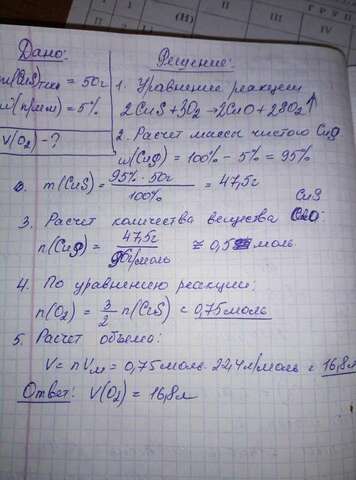 Дано:
m(CuS)техн = 50г
ω(прим) = 5%
V(O₂) - ?
Решение:
1. Уравнение реакции
2CuS + 3O₂ → 2CuO + 2SO₂↑
2. Расчет массы чистого CuS
ω(CuS) = 100% - 5% = 95%
m(CuS) = 95% · 50г / 100% = 47,5г
CuS
3. Расчет количества вещества
n(CuS) = 47,5г / 96г/моль ≈ 0,5 моль
4. По уравнению реакции:
n(O₂) = 3/2 n(CuS) = 0,75 моль
5. Расчет объема:
V = n Vм = 0,75 моль · 22,4 л/моль = 16,8л
Ответ: V(O₂) = 16,8л
(II)
III
IV